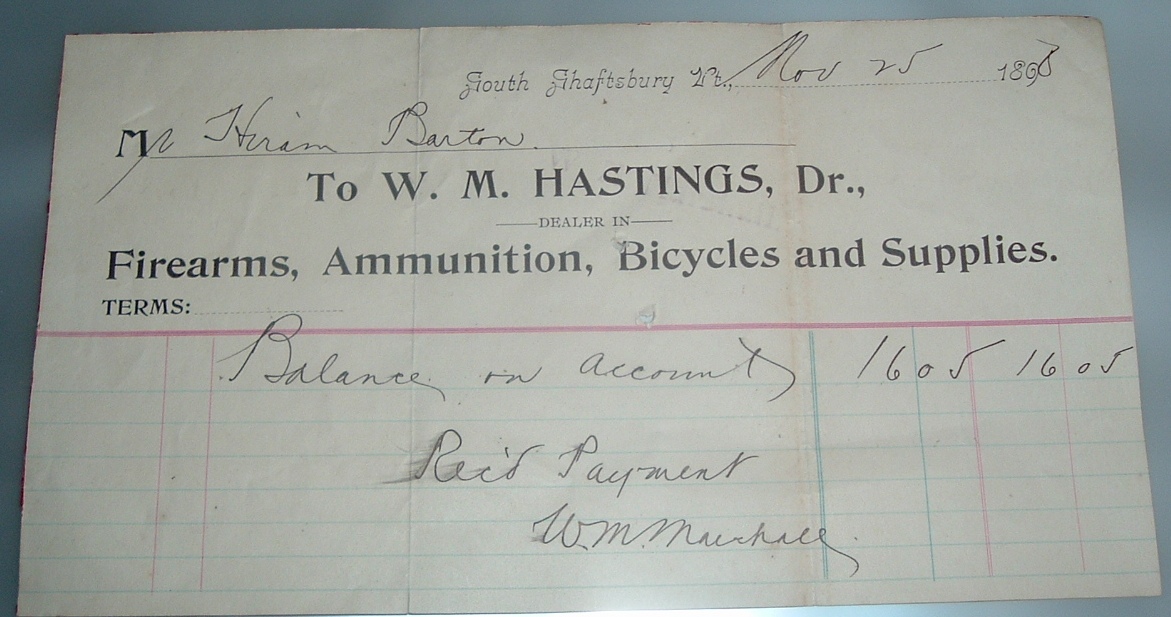 South Shaftsbury Vt., Nov 25 1898
Mr Hiram Barton.
To W. M. HASTINGS, Dr.,
DEALER IN
Firearms, Ammunition, Bicycles and Supplies.
TERMS:
Balance on account 16 05 16 05
Rec'd Payment
W.M. Marshall